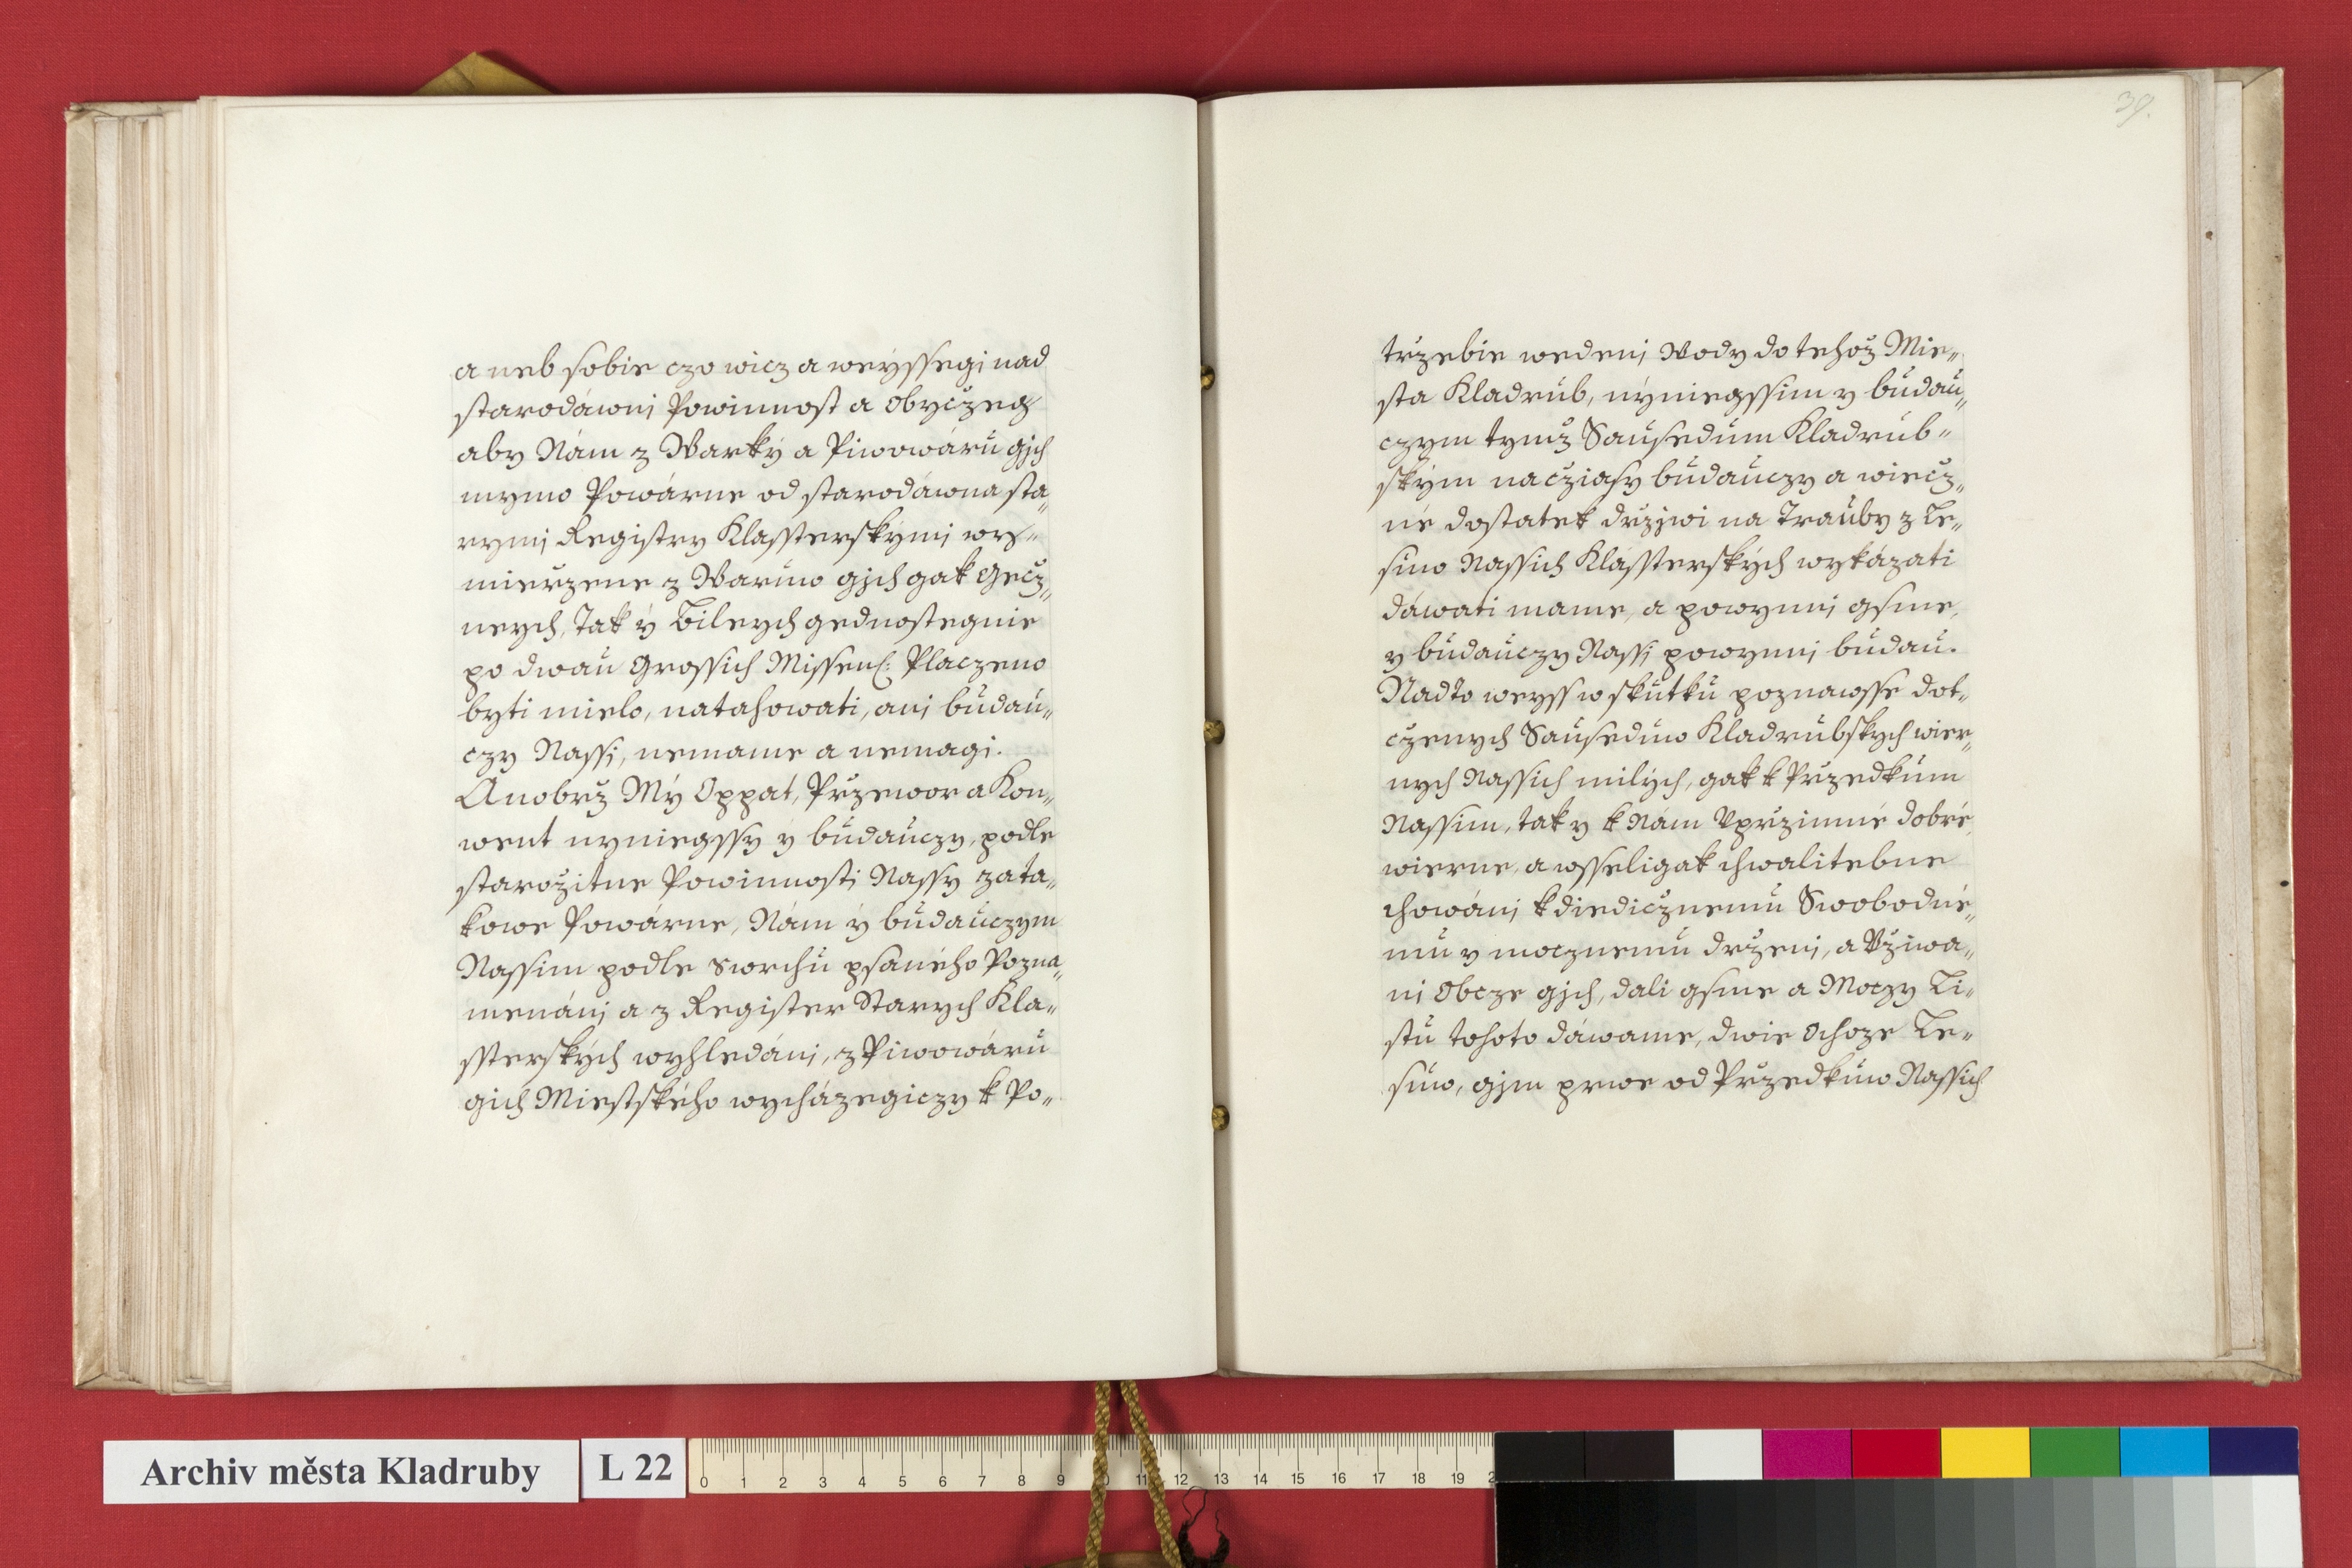 a neb sobie czo wicz a weýssegi nad
starodáwni Powinnost a Obyczeg
aby Nám z Warký a Piwowáru gjch
mymo Powárne od starodáwna sta„
rymi Registry Klassterskými wy„
mierzene z Waruw gjch gak Gecz„
neych, Tak ý Bileych gednostegnie
po dwau Grossich Missen: Placzeno
byti mielo, natahowati, ani budau„
czy Nassi, nemame a nemagi.
Anobrz Mý Oppat, Przewor a Kon„
went nyniegssy ý budauczy, podle
starožitne Powinnosti Nassy zata„
kowe Powárne, Nám ý budauczym
Nassim podle swrchu psaného Pozna„
menáni a z Register Starych Kla„
ssterských wyhledáni, z Piwowáru
gich Miestského wycházegiczy k Po„
39.
trzebie wedeni Wody do tehož Mie„
sta Kladrub, nýniegssim y budau„
czym tymž Sausedum Kladrub„
ským na cziasy budauczy a wiecz„
né dostatek drzjwi na Trauby z Le„
suw Nassich Klássterských wykázati
dáwati mame, a powynni gsme,
y budauczy Nassi powynni budau.
Nadto weyss w skutku poznawsse dot„
czenych Sauseduw Kladrubských wier„
nych Nassich milých, gak k Przedkum
Nassim, tak y k Nám Uprzimné dobré,
wierne, a wsseligak chwalitebne
chowáni k diedicznemu Swobodné„
mu y mocznemu drzeni, a Užiwa„
ni Obcze gjch, dali gsme a Moczy Li„
stu tohoto dáwame, dwie Ochoze Le„
suw, gjm prwe od Przedkuw Nassich
Archiv města Kladruby
L 22
0 1 2 3 4 5 6 7 8 9 10 11 12 13 14 15 16 17 18 19 2